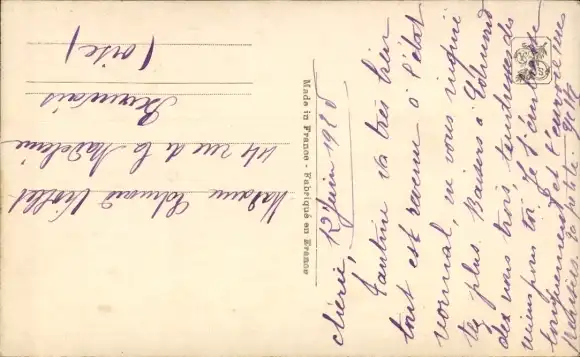 Madame Edmond Viollet
44 rue de la Madeleine
Beauvais
(Oise)
Made in France - Fabriqué en France
12 Juin 1925
chérie,
Tantine va très bien
tout est revenu à l'état
normal, ne vous inquié
tez plus. Baisers à Edmond
des vous trois, tendresses
mien pour toi. Je t'embrasse
longuement et